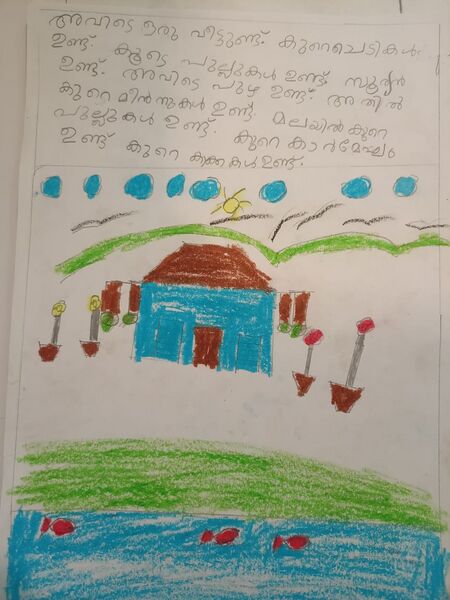 അവിടെ ഒരു വീട്ടുണ്ട്. കുറെചെടികൾ
ഉണ്ട്. കൂടെ പുല്ലുകൾ ഉണ്ട് സൂര്യൻ
ഉണ്ട്. അവിടെ പുഴ ഉണ്ട്. അതിൽ
കുറെ മീൻനുകൾ ഉണ്ട്. മലയിൽ കുറെ
പുല്ലുകൾ ഉണ്ട്. കുറെ കാർമേഘം
ഉണ്ട് കുറെ കാക്കകൾ ഉണ്ട്.